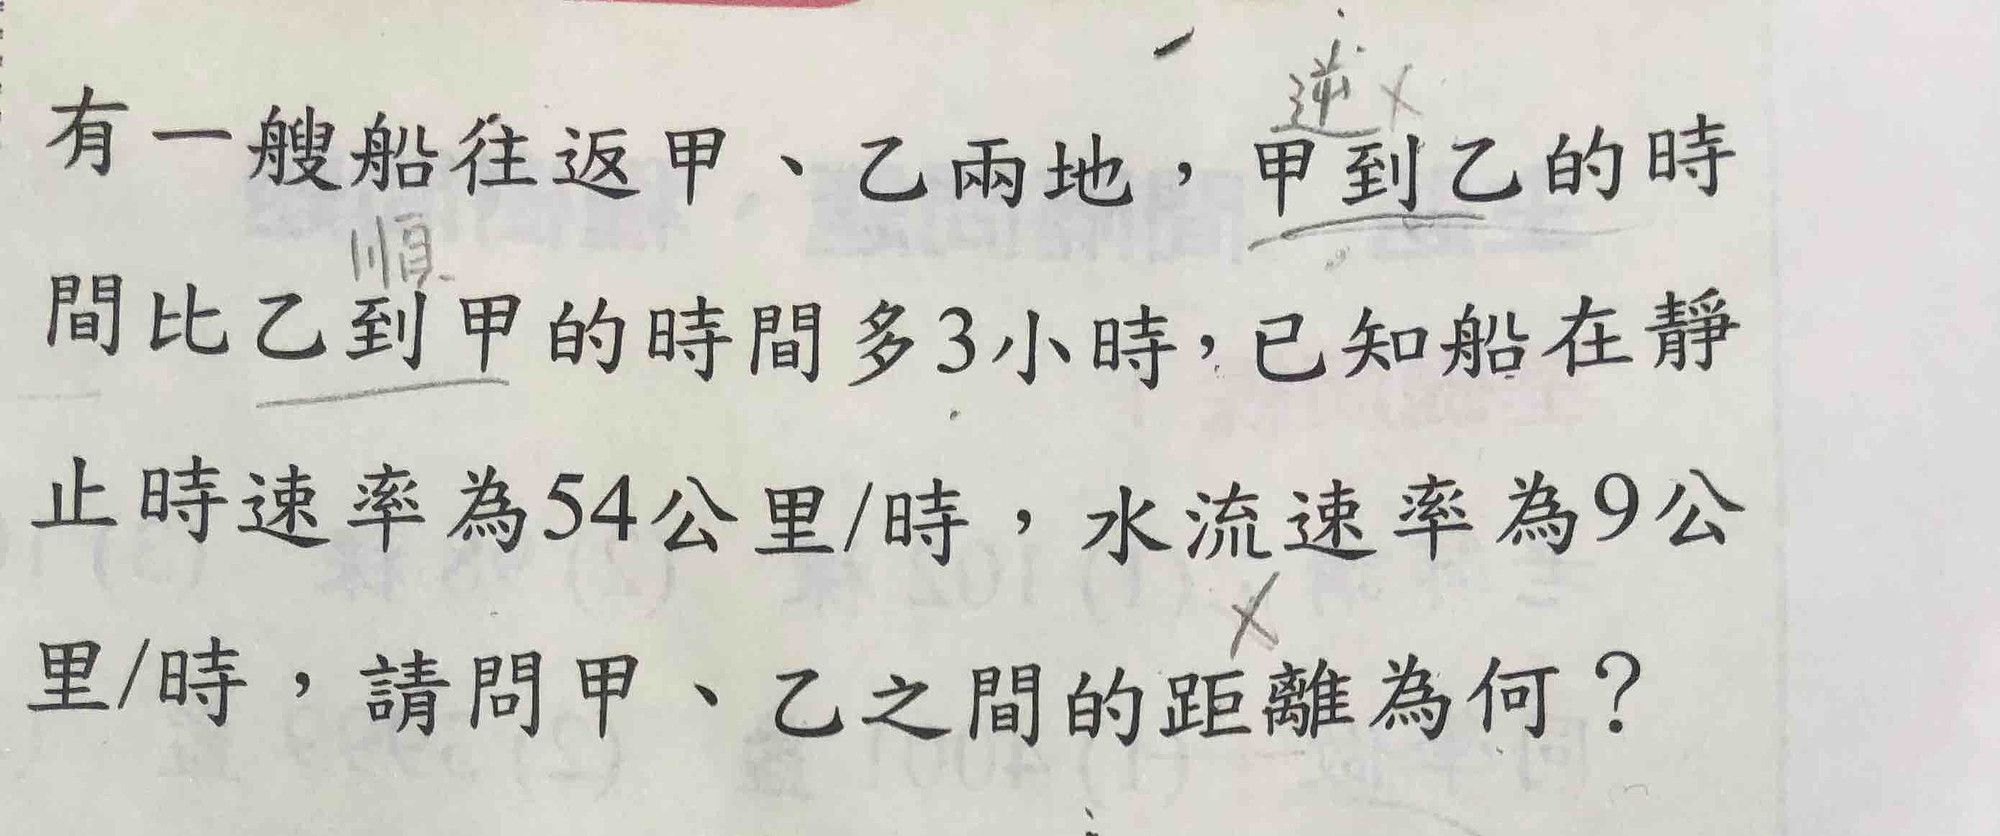 逆 ×
有一艘船往返甲、乙兩地，甲到乙的時
順
間比乙到甲的時間多3小時，已知船在靜
止時速率為54公里/時，水流速率為9公
×
里/時，請問甲、乙之間的距離為何？